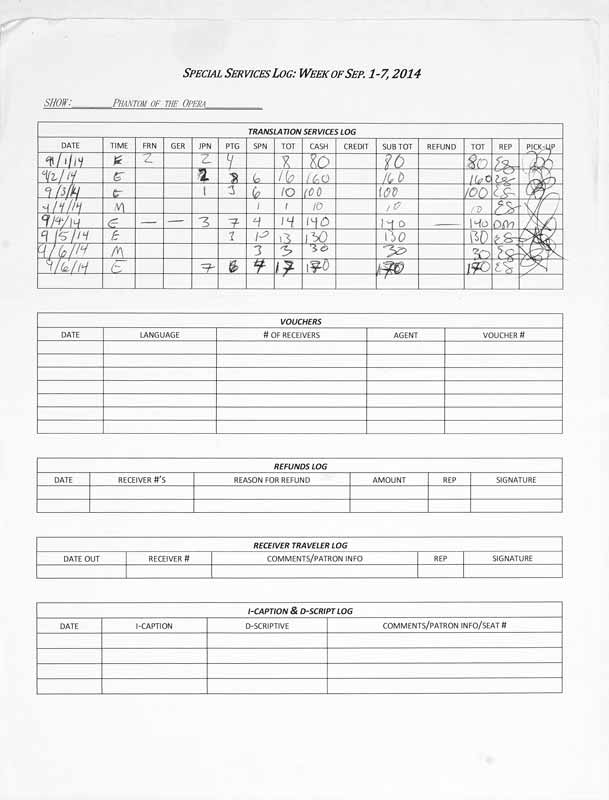 SPECIAL SERVICES LOG: WEEK OF SEP. 1-7, 2014
SHOW: PHANTOM OF THE OPERA
TRANSLATION SERVICES LOG
DATE TIME FRN GER JPN PTG SPN TOT CASH CREDIT SUB TOT REFUND TOT REP PICK-UP
9/1/14 E 2 2 4 8 80 80 80 ES
9/2/14 E 2 8 6 16 160 160 160 ES
9/3/14 E 1 3 6 10 100 100 100 ES
9/4/14 M 1 1 10 10 10 ES
9/4/14 E — — 3 7 4 14 140 140 — 140 DM
9/5/14 E 3 10 13 130 130 130 ES
9/6/14 M 3 3 30 30 30 ES
9/6/14 E 7 6 4 17 170 170 170 ES
VOUCHERS
DATE LANGUAGE # OF RECEIVERS AGENT VOUCHER #
REFUNDS LOG
DATE RECEIVER #'S REASON FOR REFUND AMOUNT REP SIGNATURE
RECEIVER TRAVELER LOG
DATE OUT RECEIVER # COMMENTS/PATRON INFO REP SIGNATURE
I-CAPTION & D-SCRIPT LOG
DATE I-CAPTION D-SCRIPTIVE COMMENTS/PATRON INFO/SEAT #